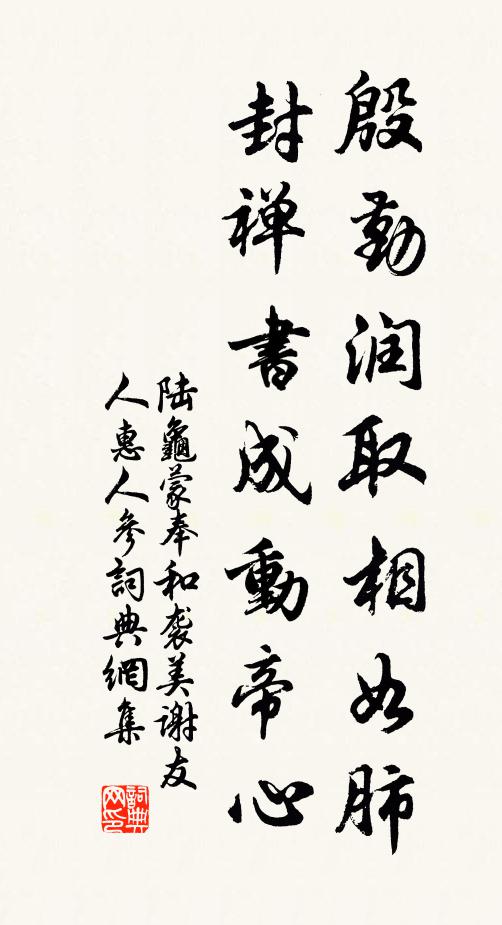 殷勤润取相如肺
封禅書成動帝心
陆龜蒙奉和袭美谢友
人惠人参詞典網集
詞典网印